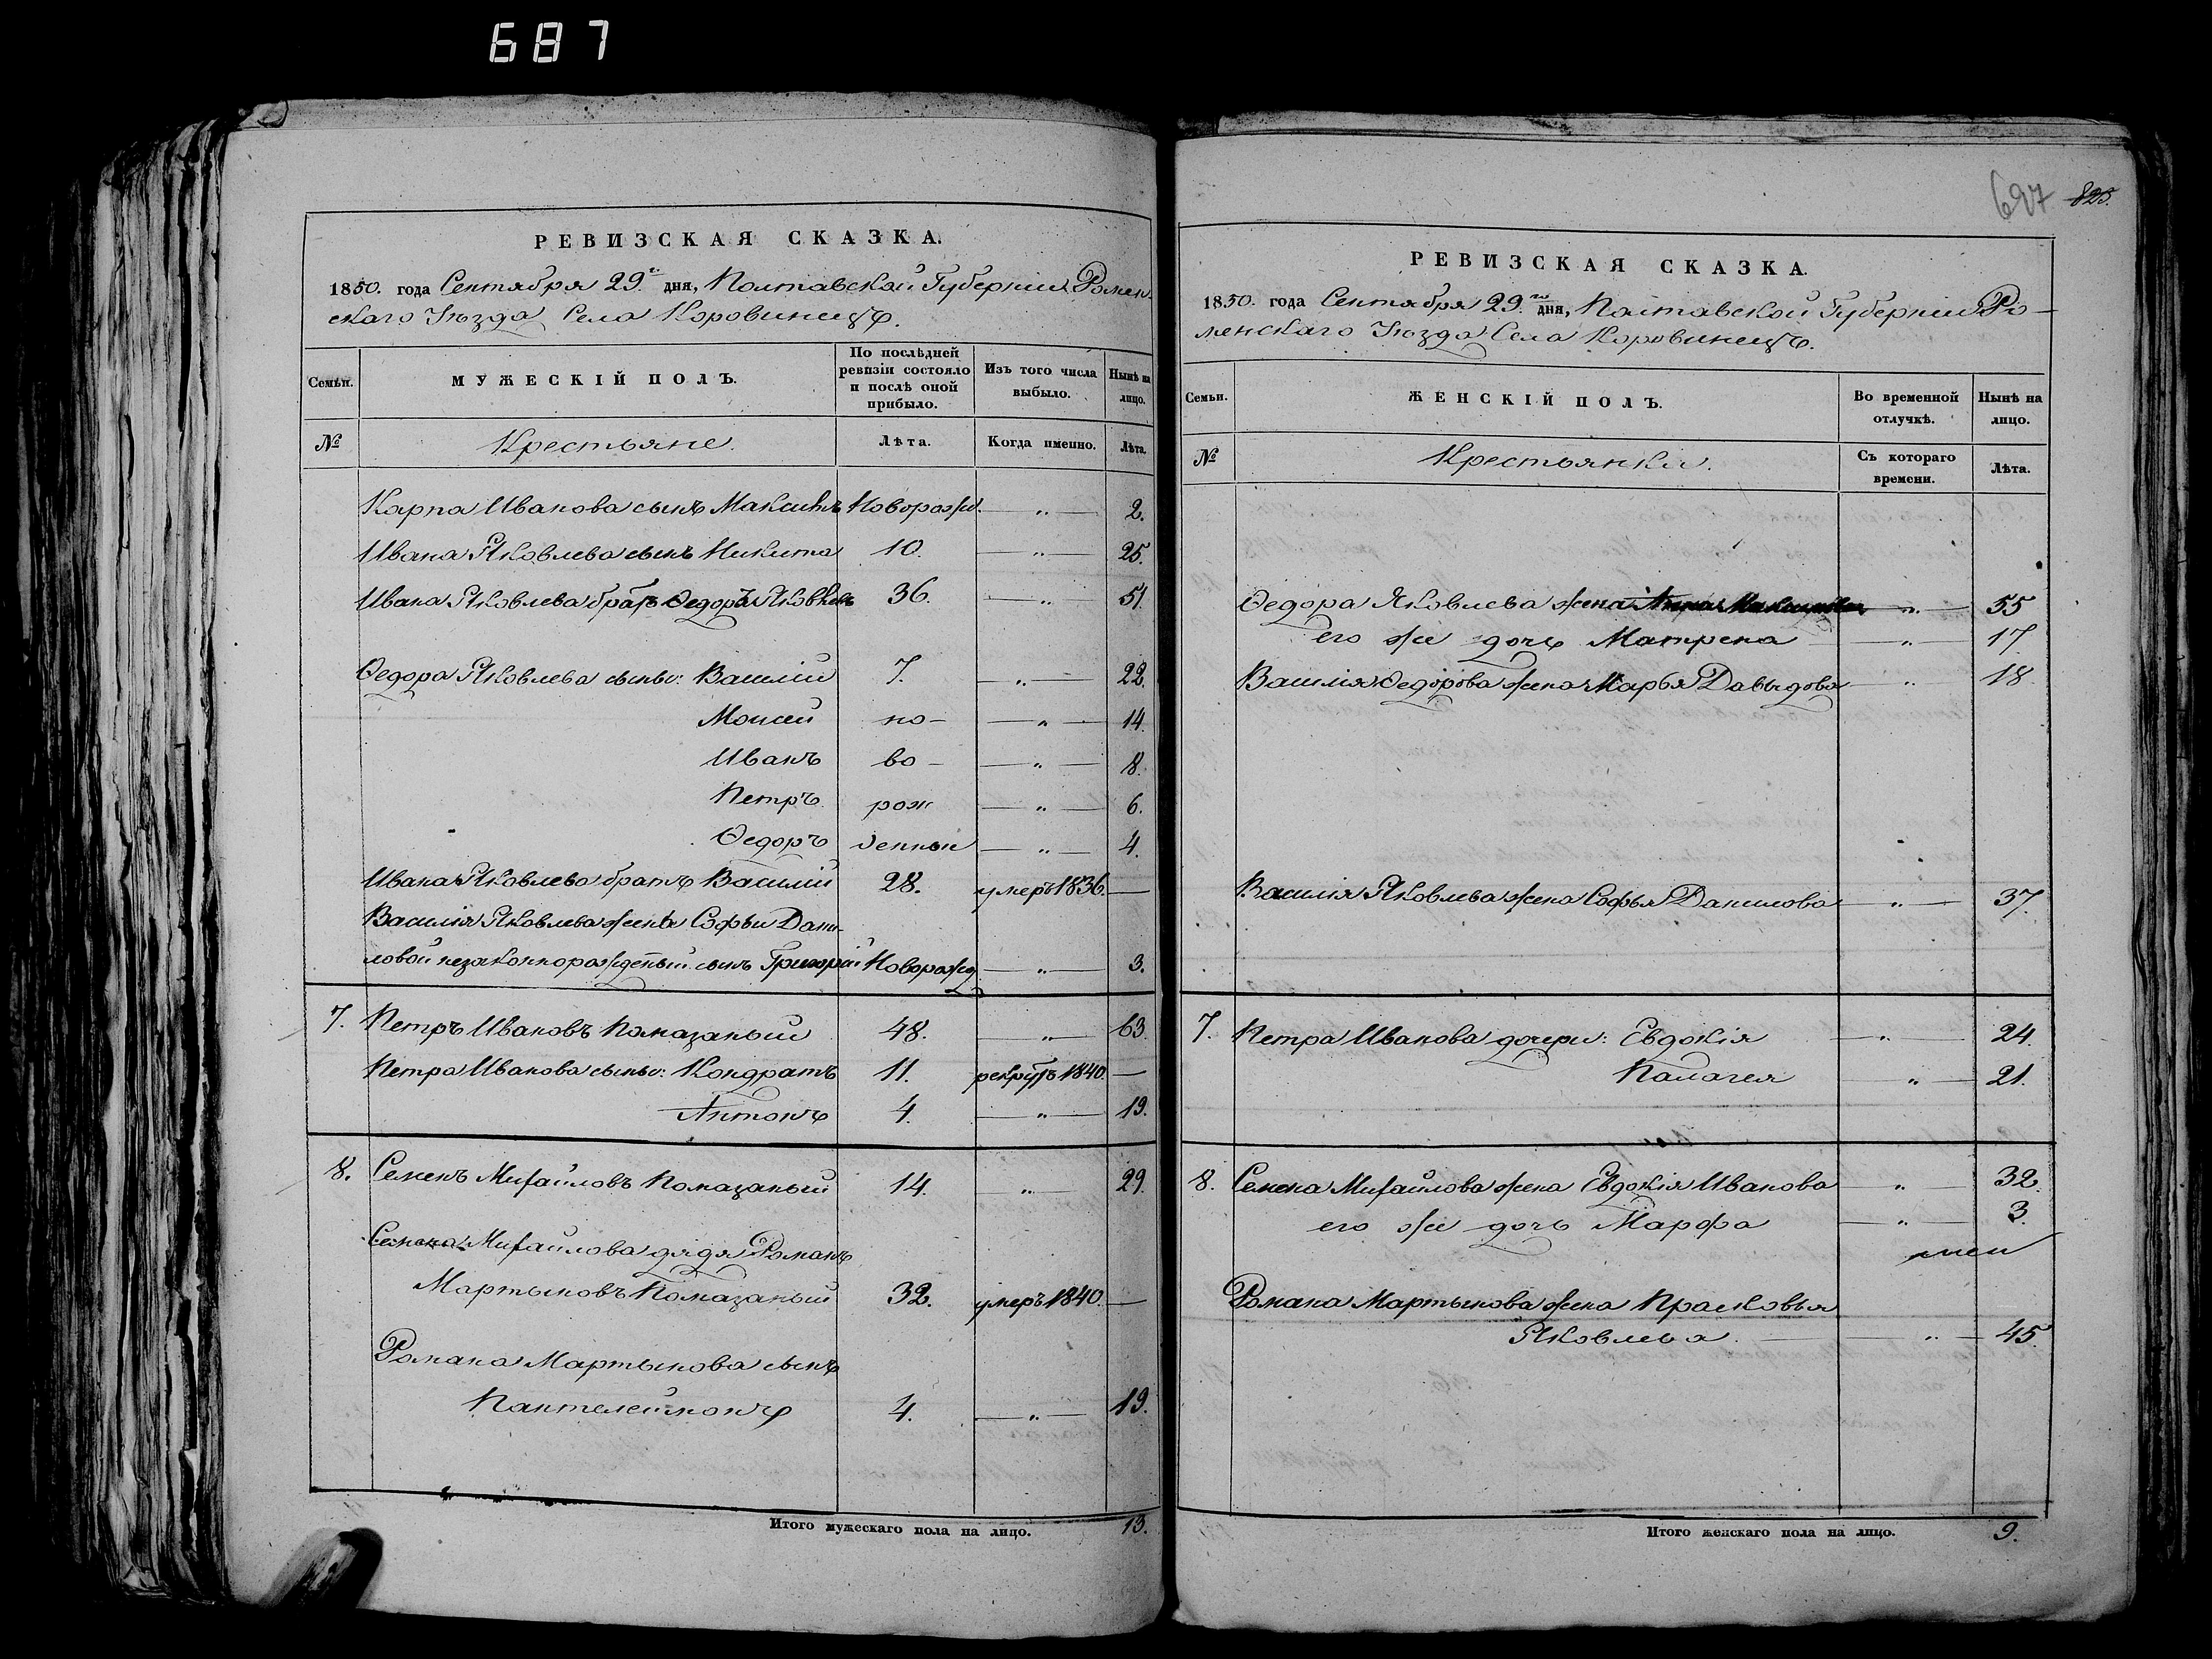 687
РЕВИЗСКАЯ СКАЗКА.
1850. года Сентября 29го дня, Полтавской Губерніи Ромен-
скаго Уѣзда Села Коровинецъ.
Семьи. МУЖЕСКІЙ ПОЛЪ. По послѣдней ревизіи состояло и послѣ оной прибыло. Изъ того числа выбыло. Нынѣ на лицо.
№ Крестьяне. Лѣта. Когда именно. Лѣта.
Карпа Иванова сынъ Максимъ Новорожд. — „ — 2.
Ивана Яковлева сынъ Никита 10. — „ — 25.
Ивана Яковлева братъ Ѳедоръ Яковлевъ 36. — „ — 51.
Ѳедора Яковлева сыны: Василій 7. — „ — 22.
Моисей но- — „ — 14.
Иванъ во- — „ — 8.
Петръ рож — „ — 6.
Ѳедоръ денныи — „ — 4.
Ивана Яковлева братъ Василій 28. умеръ 1836. —
Василія Яковлева жены Софьи Дани-
ловой незаконнорожденный сынъ Григорій Новорожд — „ — 3.
7. Петръ Ивановъ Помазаный 48. — „ — 63
Петра Иванова сыны: Кондратъ 11. рекрутъ 1840. —
Антонъ 4. — „ — 19.
8. Семенъ Михайловъ Помазаный 14. — „ — 29.
Семена Михайлова дядя Романъ
Мартыновъ Помазаный 32. умеръ 1840. —
Романа Мартынова сынъ
Пантелеймонъ 4. — „ — 19.
Итого мужескаго пола на лицо. 13.
697 823.
РЕВИЗСКАЯ СКАЗКА.
1850. года Сентября 29го дня, Полтавской Губерніи Ро-
менскаго Уѣзда Села Коровинецъ.
Семьи. ЖЕНСКІЙ ПОЛЪ. Во временной отлучкѣ. Нынѣ на лицо.
№ Крестьянки. Съ котораго времени. Лѣта.
Ѳедора Яковлева жена Анна Максимова — „ — 55
его же дочь Матрена — „ — 17.
Василія Ѳедорова жена Марья Давыдова — „ — 18
Василія Яковлева жена Софья Данилова — „ — 37.
7. Петра Иванова дочери: Евдокія — „ — 24.
Палагея — „ — 21.
8. Семена Михайлова жена Евдокія Иванова — „ — 32.
его же дочь Марфа — „ — 3.
Романа Мартынова жена Прасковья
Яковлева. — „ — 45.
Итого женскаго пола на лицо. 9.